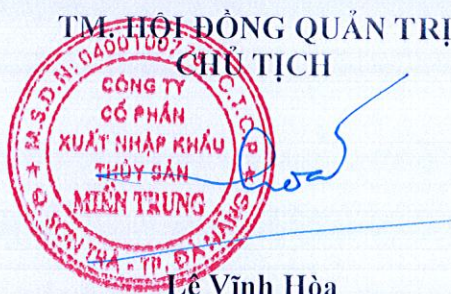 TM. HỘI ĐỒNG QUẢN TRỊ
CHỦ TỊCH
M.S.D.N: 0400100778 - C.T.C.P
CÔNG TY
CỔ PHẦN
XUẤT NHẬP KHẨU
THỦY SẢN
MIỀN TRUNG
Q. SƠN TRÀ - TP. ĐÀ NẴNG
Hoa
Lê Vĩnh Hòa